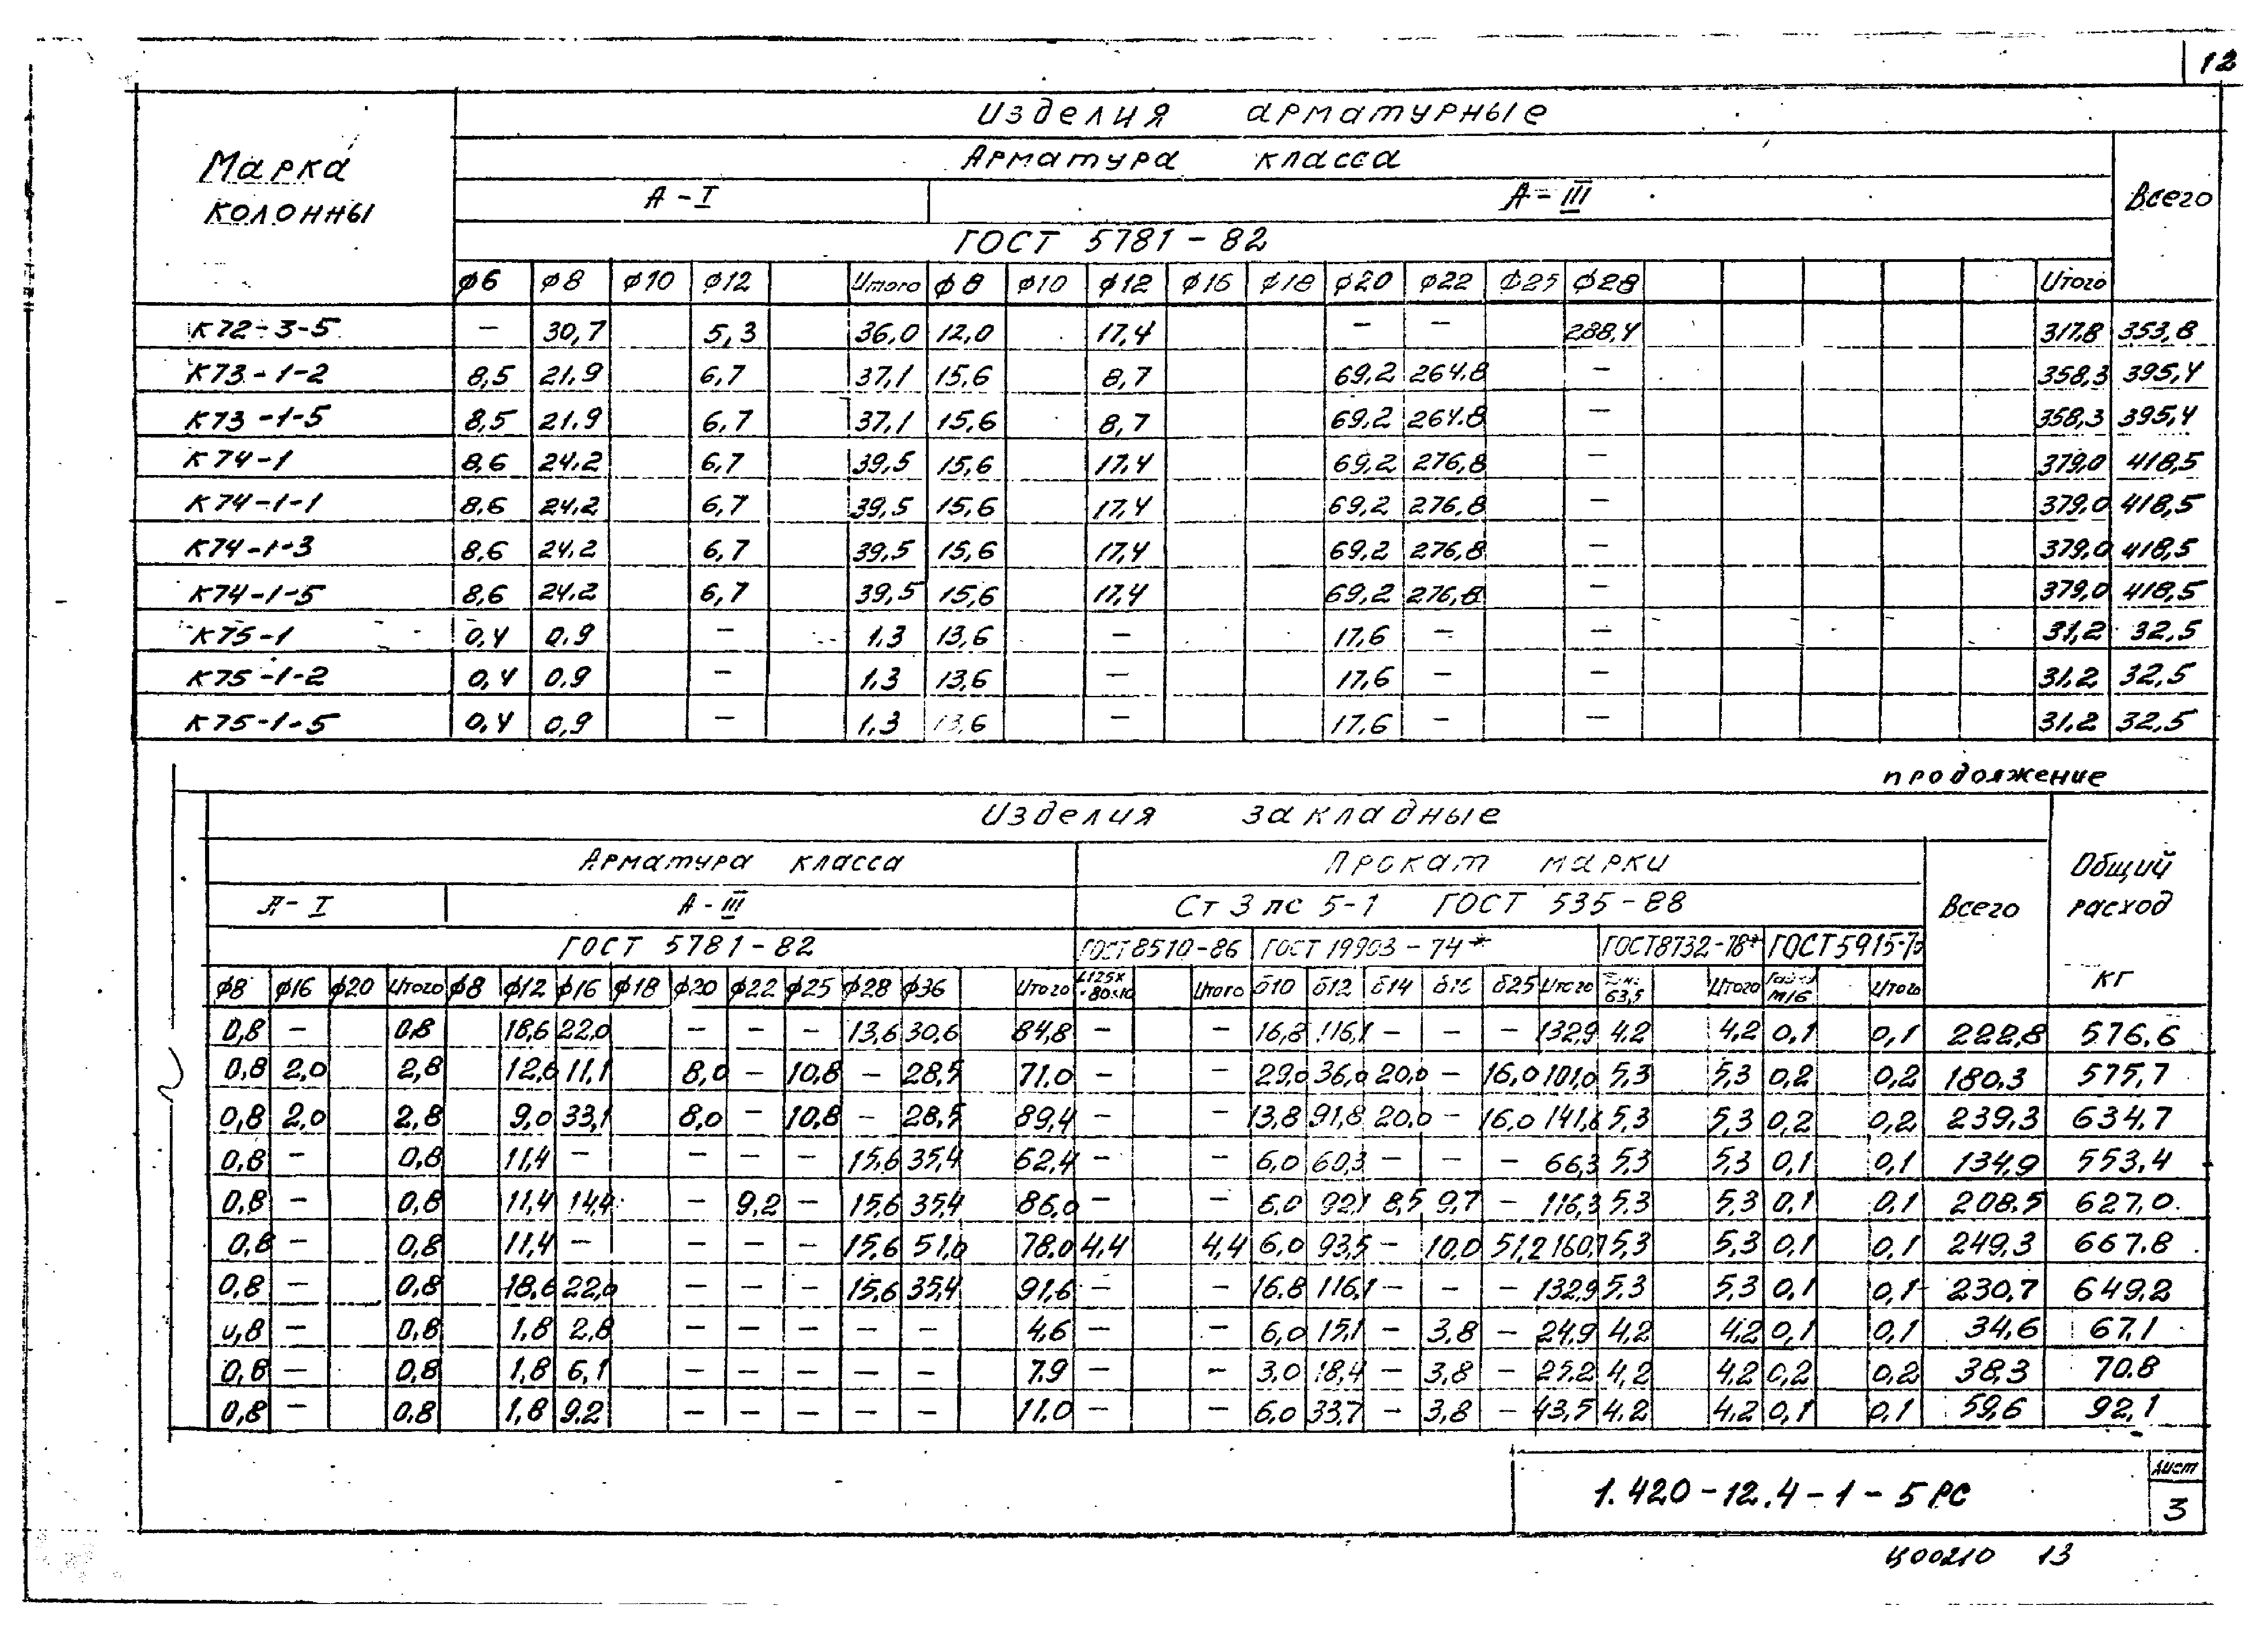 12
Изделия арматурные
Марка колонны
Арматура класса
Всего
А-I А-III
ГОСТ 5781-82
ф6 ф8 ф10 ф12 Итого ф8 ф10 ф12 ф16 ф18 ф20 ф22 ф25 ф28 Итого
К72-3-5 — 30,7 5,3 36,0 12,0 17,4 — — 288,4 317,8 353,8
К73-1-2 8,5 21,9 6,7 37,1 15,6 8,7 69,2 264,8 — 358,3 395,4
К73-1-5 8,5 21,9 6,7 37,1 15,6 8,7 69,2 264,8 — 358,3 395,4
К74-1 8,6 24,2 6,7 39,5 15,6 17,4 69,2 276,8 — 379,0 418,5
К74-1-1 8,6 24,2 6,7 39,5 15,6 17,4 69,2 276,8 — 379,0 418,5
К74-1-3 8,6 24,2 6,7 39,5 15,6 17,4 69,2 276,8 — 379,0 418,5
К74-1-5 8,6 24,2 6,7 39,5 15,6 17,4 69,2 276,8 — 379,0 418,5
К75-1 0,4 0,9 — 1,3 13,6 — 17,6 — — 31,2 32,5
К75-1-2 0,4 0,9 — 1,3 13,6 — 17,6 — — 31,2 32,5
К75-1-5 0,4 0,9 — 1,3 13,6 — 17,6 — — 31,2 32,5
продолжение
Изделия закладные
Арматура класса Прокат марки
Общий расход кг
А-I А-III Ст 3 пс 5-1 ГОСТ 535-88 Всего
ГОСТ 5781-82 ГОСТ 8510-86 ГОСТ 19903-74* ГОСТ 8732-78* ГОСТ 5915-73
ф8 ф16 ф20 Итого ф8 ф12 ф16 ф18 ф20 ф22 ф25 ф28 ф36 Итого L125х80х10 Итого δ10 δ12 δ14 δ16 δ25 Итого 63,5 Итого Гайка М16 Итого
0,8 — 0,8 18,6 22,0 — — — 13,6 30,6 84,8 — — 16,8 116,1 — — — 132,9 4,2 4,2 0,1 0,1 222,8 576,6
0,8 2,0 2,8 12,6 11,1 8,0 — 10,8 — 28,5 71,0 — — 29,0 36,0 20,0 — 16,0 101,0 5,3 5,3 0,2 0,2 180,3 575,7
0,8 2,0 2,8 9,0 33,1 8,0 — 10,8 — 28,5 89,4 — — 13,8 91,8 20,0 — 16,0 141,6 5,3 5,3 0,2 0,2 239,3 634,7
0,8 — 0,8 11,4 — — — — 15,6 35,4 62,4 — — 6,0 60,3 — — — 66,3 5,3 5,3 0,1 0,1 134,9 553,4
0,8 — 0,8 11,4 14,4 — 9,2 — 15,6 35,4 86,0 — — 6,0 92,1 8,5 9,7 — 116,3 5,3 5,3 0,1 0,1 208,5 627,0
0,8 — 0,8 11,4 — — — — 15,6 51,0 78,0 4,4 4,4 6,0 93,5 — 10,0 51,2 160,7 5,3 5,3 0,1 0,1 249,3 667,8
0,8 — 0,8 18,6 22,0 — — — 15,6 35,4 91,6 — — 16,8 116,1 — — — 132,9 5,3 5,3 0,1 0,1 230,7 649,2
0,8 — 0,8 1,8 2,8 — — — — — 4,6 — — 6,0 15,1 — 3,8 — 24,9 4,2 4,2 0,1 0,1 34,6 67,1
0,8 — 0,8 1,8 6,1 — — — — — 7,9 — — 3,0 18,4 — 3,8 — 25,2 4,2 4,2 0,2 0,2 38,3 70,8
0,8 — 0,8 1,8 9,2 — — — — — 11,0 — — 6,0 33,7 — 3,8 — 43,5 4,2 4,2 0,1 0,1 59,6 92,1
1.420-12.4-1-5РС
Лист
3
Ц00210 13